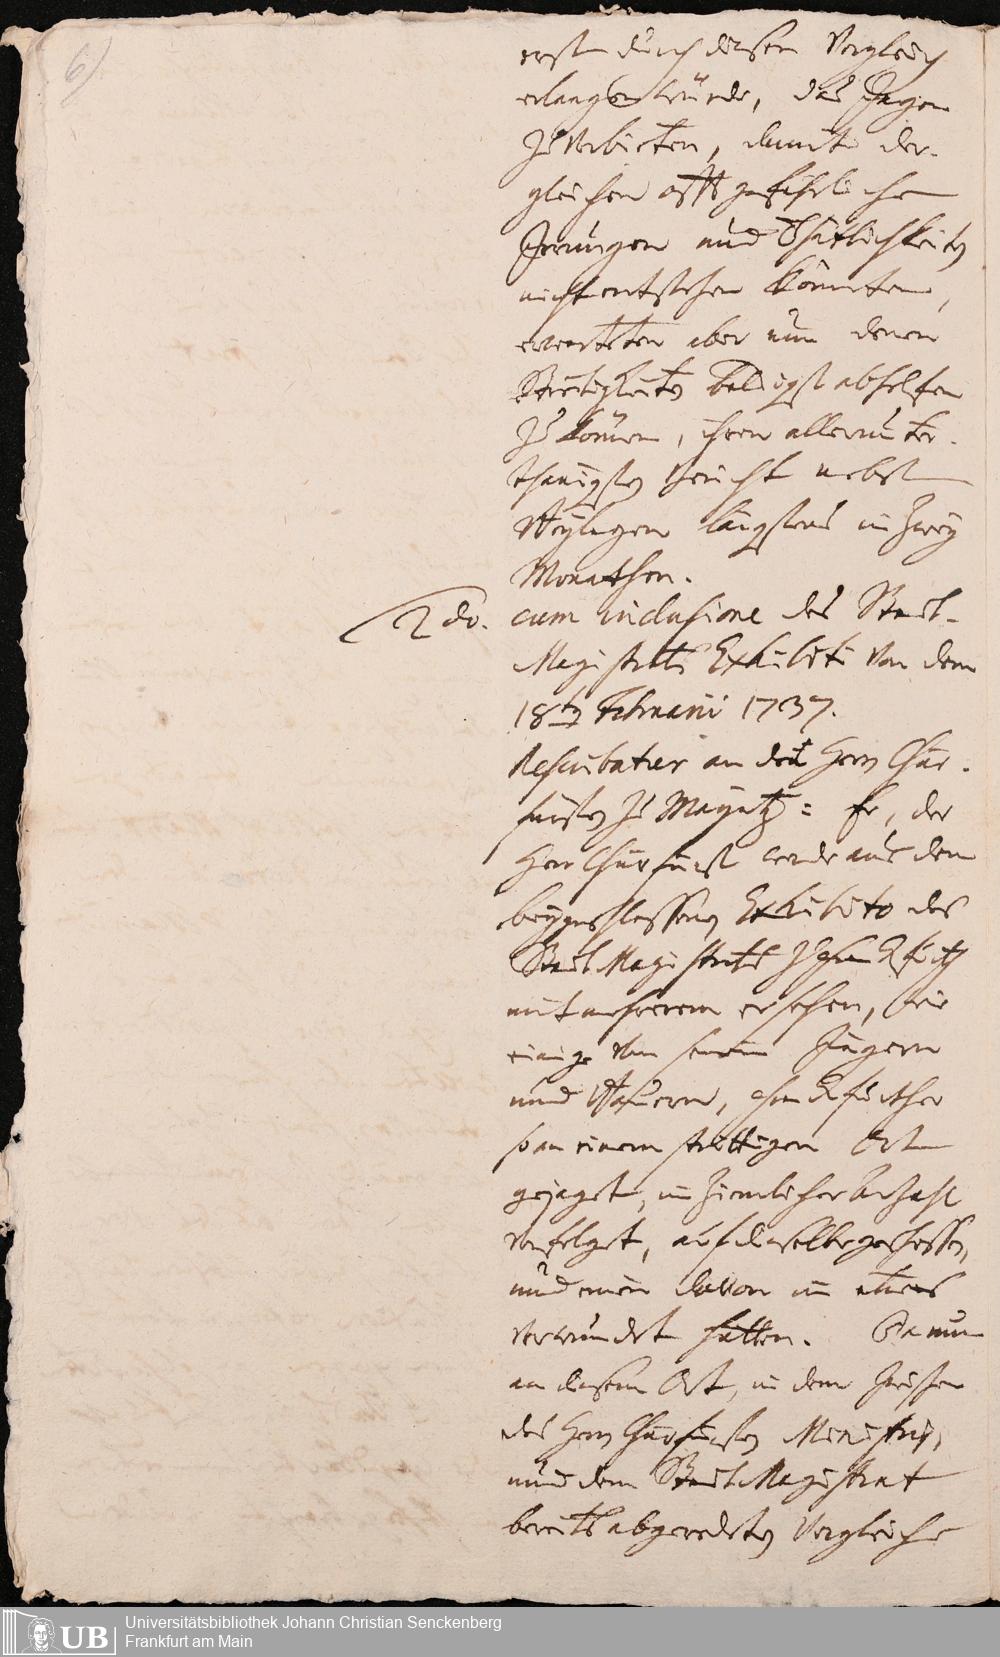 6)
erst durch diesen Vergleich
erlangen würde, das Jagen
zu verbieten, damit der-
gleichen offt gefährliche
Irrungen und Thätlichkeiten
nicht entstehen könnten,
erwarteten aber nun denen
Streitigkeiten baldigst abhelfen
zu können, ihren allerunter-
thänigsten Bericht nebst
Beylagen längstens in zwey
Monathen.
2do. cum inclusione des Stadt-
Magistrats Exhibiti von dem
18ten Februarii 1737.
Rescribatur an den Herrn Chur-
fürsten zu Mayntz: Er, der
Herr Churfürst werde aus dem
beygeschlossenen Exhibito des
Stadt Magistrats zu
mit mehrerem ersehen, wie
einige von seinen Jägern
und Bauern,
so an einem strittigen Ort
gejaget, in ziemlicher Anzahl
verfolget, auf dieselbe geschossen,
und einen davon in etwas
verwundet hätten. Da nun
an diesem Ort, in dem zwischen
des Herrn Churfürsten Ministris,
und dem Stadt Magistrat
bereits abgeredeten Vergleiche
UB
Universitätsbibliothek Johann Christian Senckenberg
Frankfurt am Main